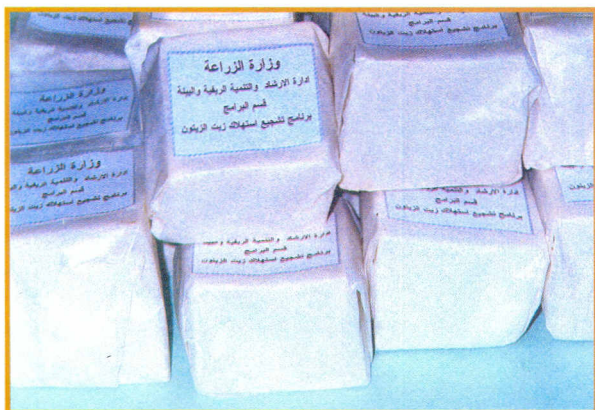 وزارة الزراعة
ادارة الارشاد والتنمية الريفية والبيئة
قسم البرامج
برنامج تشجيع استهلاك زيت الزيتون
برنامج تشجيع استهلاك زيت الزيتون
الزيتون
وزارة الزراعة
ادارة الارشاد والتنمية الريفية والبيئة
قسم البرامج
برنامج تشجيع استهلاك زيت
وزارة الزراعة
ادارة الارشاد والتنمية الريفية
قسم البرامج
برنامج تشجيع استهلاك زيت
ادارة الارشاد والتنمية الريفية والبيئة
قسم البرامج
برنامج تشجيع استهلاك زيت الزيتون
ادارة الارشاد والتنمية الريفية والبيئة
قسم البرامج
برنامج تشجيع استهلاك زيت الزيتون
الزيتون